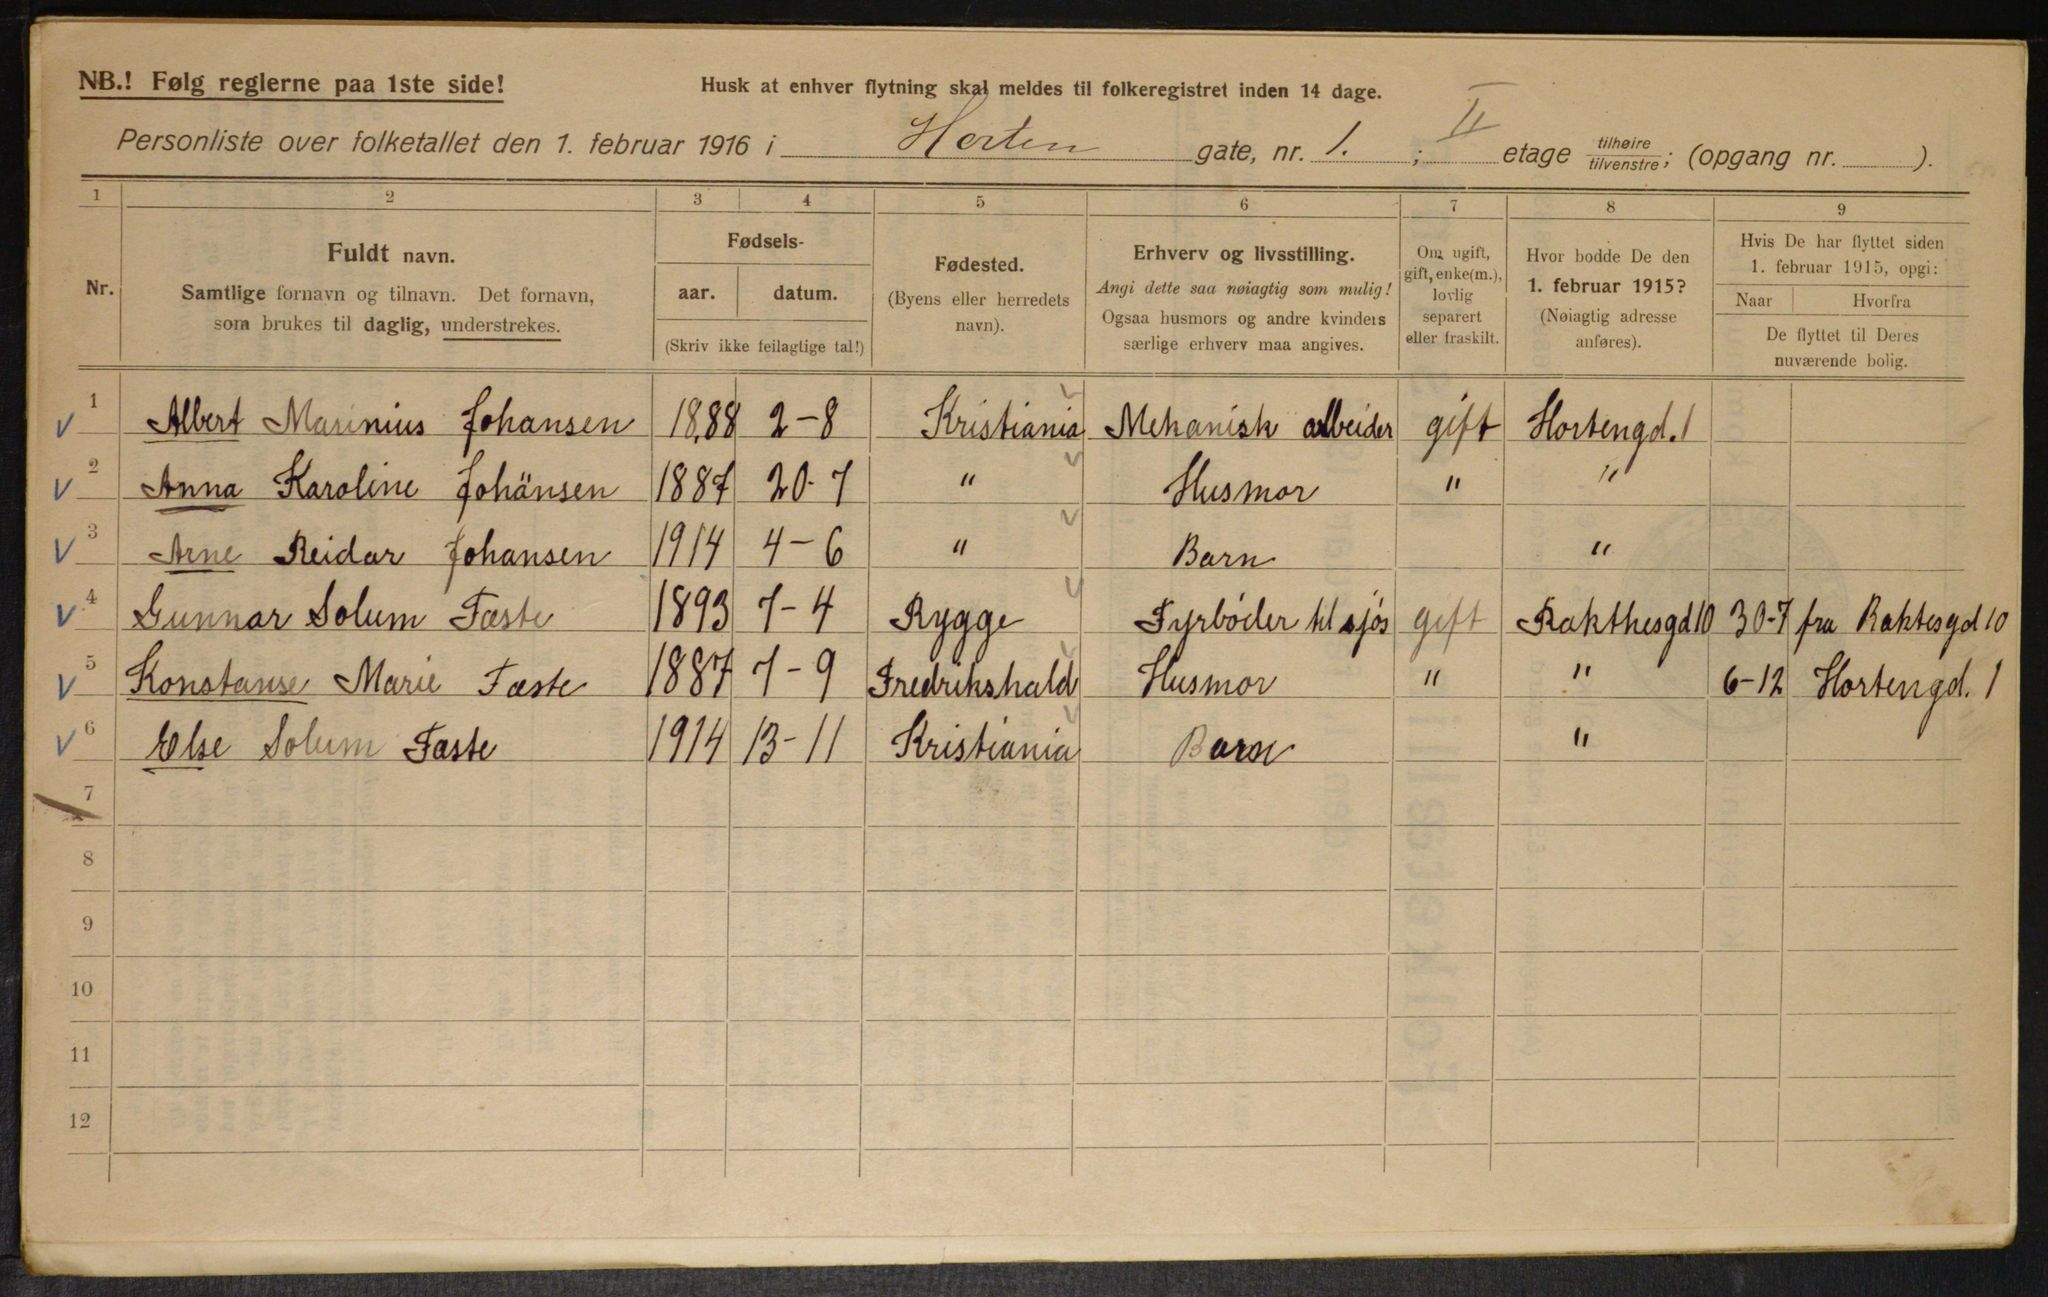 NB.! Følg reglerne paa 1ste side!
Husk at enhver flytning skal meldes til folkeregistret inden 14 dage.
Personliste over folketallet den 1. februar 1916 i Horten gate, nr. 1. ; II etage tilhøire/tilvenstre; (opgang nr. ).
1 2 3 4 5 6 7 8 9
Nr.
Fuldt navn.
Samtlige fornavn og tilnavn. Det fornavn,
som brukes til daglig, understrekes.
Fødsels-
aar. datum.
(Skriv ikke feilagtige tal!)
Fødested.
(Byens eller herredets
navn).
Erhverv og livsstilling.
Angi dette saa nøiagtig som mulig!
Ogsaa husmors og andre kvinders
særlige erhverv maa angives.
Om ugift,
gift, enke(m.),
lovlig
separert
eller fraskilt.
Hvor bodde De den
1. februar 1915?
(Nøiagtig adresse
anføres).
Hvis De har flyttet siden
1. februar 1915, opgi:
Naar Hvorfra
De flyttet til Deres
nuværende bolig.
1 Albert Marinius Johansen 1888 2-8 Kristiania Mekanisk arbeider gift Hortengd. 1
2 Anna Karoline Johänsen 1887 20-7 " Husmor " "
3 Arne Reidar Johansen 1914 4-6 " Barn "
4 Gunnar Solum Fæste 1893 7-4 Rygge Fyrböder til sjös gift Rakthesgd 10 30-7 fra Raktesgd 10
5 Konstanse Marie Fæste 1887 7-9 Fredrikshald Husmor " " 6-12 Hortengd. 1
6 Else Solum Fæste 1914 13-11 Kristiania Barn "
7
8
9
10
11
12